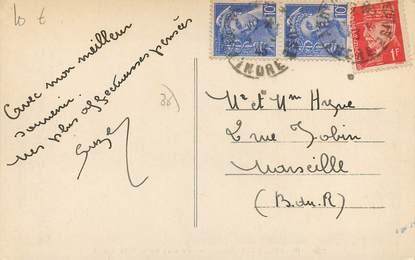 10 €
Avec mon meilleur
souvenir.
mes plus affectueuses pensées
(36)
INDRE
10
10
1F
Mr et Mme
2 rue Jobin
Marseille
(B. du. R)